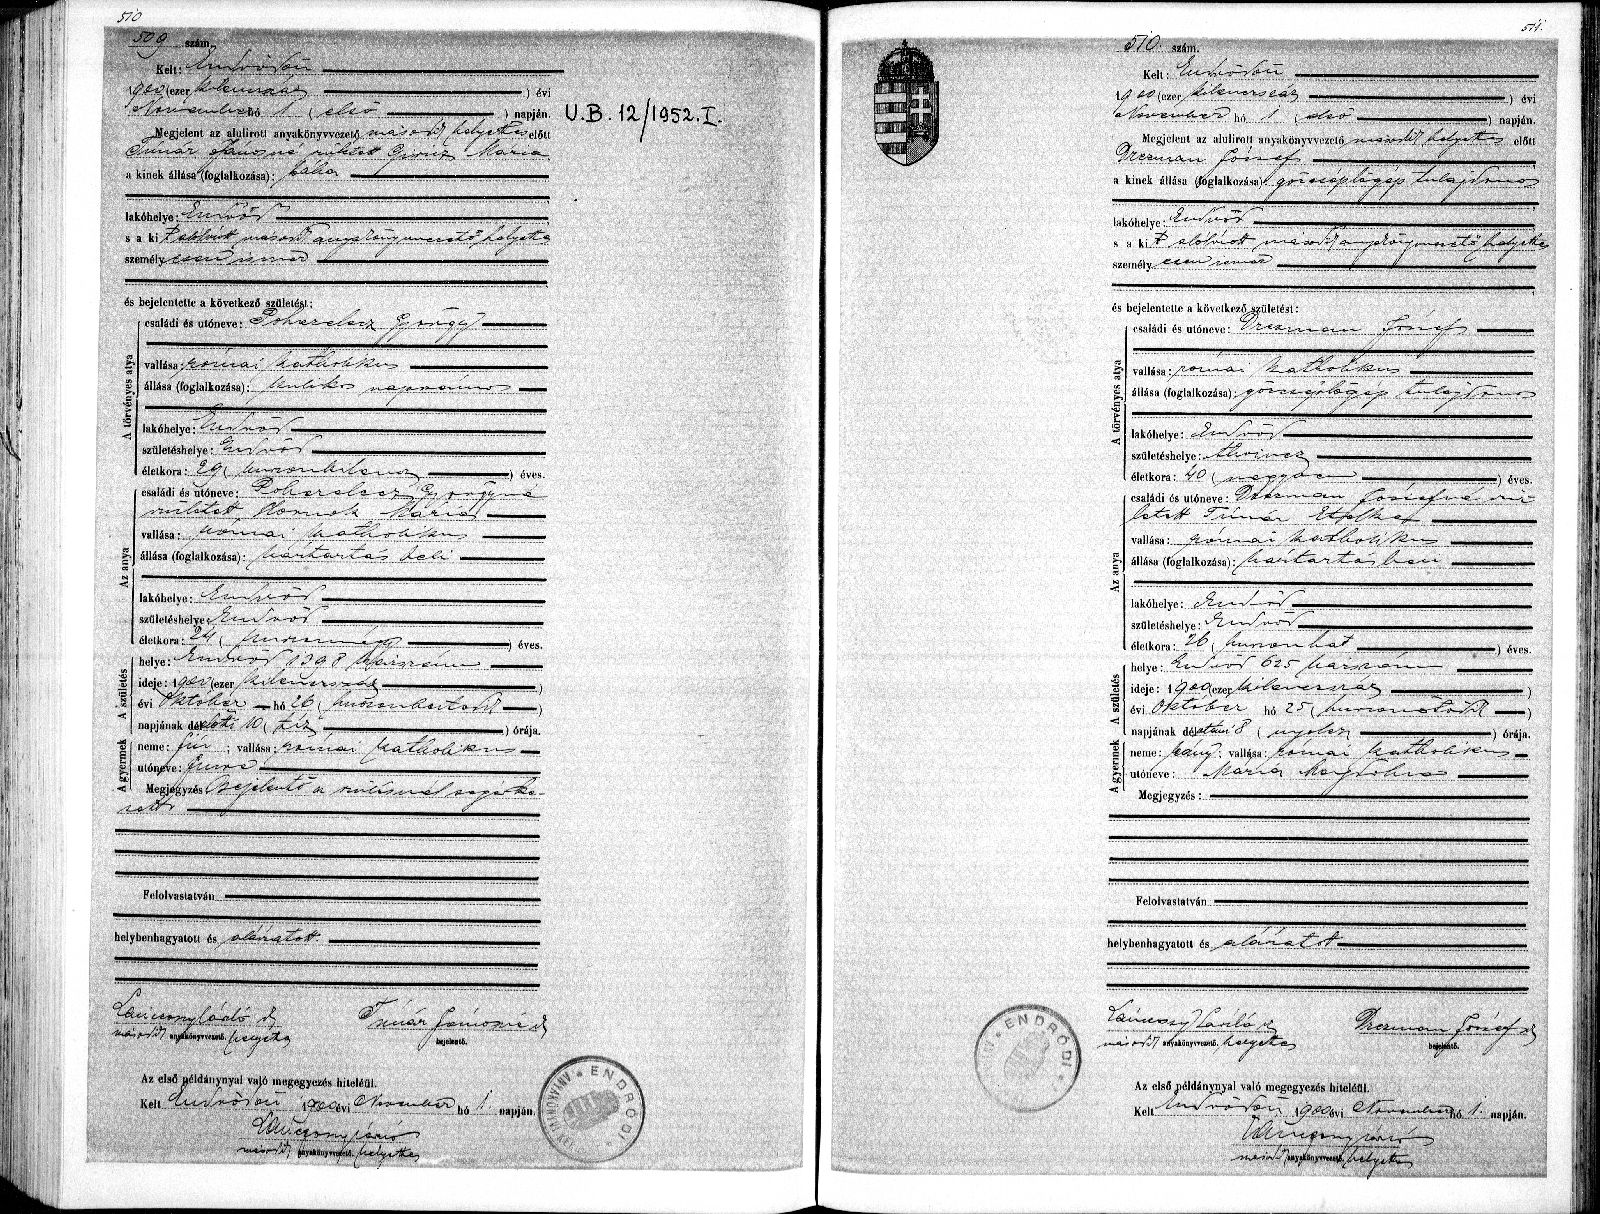 510
509 szám.
Kelt: Endrődön
1900 (ezer kilencszáz ) évi
November hó 1 ( első ) napján.
U.B. 12/1952. I.
Megjelent az alulirott anyakönyvvezető másod helyettes előtt
Tímár Jánosné született Giricz Mária
a kinek állása (foglalkozása): bába
lakóhelye: Endrőd
s a kit alólirott másod anyakönyvvezető helyettes
személyesen ismer
és bejelentette a következő születést:
A törvényes atya
családi és utóneve: Poharelecz György
vallása: római katholikus
állása (foglalkozása): kubikos napszámos
lakóhelye: Endrőd
születéshelye: Endrőd
életkora: 29 ( huszonkilencz ) éves.
Az anya
családi és utóneve: Poharelecz Györgyné
született Hornok Mária
vallása: római katholikus
állása (foglalkozása): háztartásbeli
lakóhelye: Endrőd
születéshelye: Endrőd
életkora: 24 ( huszonnégy ) éves.
A születés
helye: Endrőd 1398 házszám
ideje: 1900 (ezer kilencszáz )
évi október hó 26 ( huszonhatodik )
napjának délelőtti 10 ( tíz ) órája.
A gyermek
neme: fiú ; vallása: római katholikus
utóneve: Imre
Megjegyzés Bejelentő a szülésnél segédke-
zett
Felolvastatván
helybenhagyatott és aláíratott.
másod anyakönyvvezető. helyettes
Tímár Jánosné
bejelentő.
Az első példánynyal való megegyezés hiteléül.
Kelt Endrődön 1900 évi November hó 1. napján.
másod anyakönyvvezető. helyettes
ENDRŐDI
511.
510. szám.
Kelt: Endrődön
1900 (ezer kilencszáz ) évi
November hó 1 ( első ) napján.
Megjelent az alulirott anyakönyvvezető másod helyettes előtt
Dezman József
a kinek állása (foglalkozása): gőzcséplőgép tulajdonos
lakóhelye: Endrőd
s a kit alólirott másod anyakönyvvezető helyettes
személyesen ismer
és bejelentette a következő születést:
A törvényes atya
családi és utóneve: Dezman József
vallása: római katholikus
állása (foglalkozása): gőzcséplőgép tulajdonos
lakóhelye: Endrőd
születéshelye: Alvincz
életkora: 40 ( negyven ) éves.
Az anya
családi és utóneve: Dezman Józsefné szü-
letett Tímár Etelka
vallása: római katholikus
állása (foglalkozása): háztartásban
lakóhelye: Endrőd
születéshelye: Endrőd
életkora: 26 ( huszonhat ) éves.
A születés
helye: Endrőd 625 házszám
ideje: 1900 (ezer kilencszáz )
évi október hó 25 ( huszonötödik )
napjának délutáni 8 ( nyolcz ) órája.
A gyermek
neme: leány; vallása: római katholikus
utóneve: Mária Magdolna
Megjegyzés:
Felolvastatván
helybenhagyatott és aláíratott
másod anyakönyvvezető. helyettes
Dezman József
bejelentő.
ENDRŐDI
Az első példánynyal való megegyezés hiteléül.
Kelt Endrődön 1900 évi November hó 1. napján.
másod anyakönyvvezető. helyettes